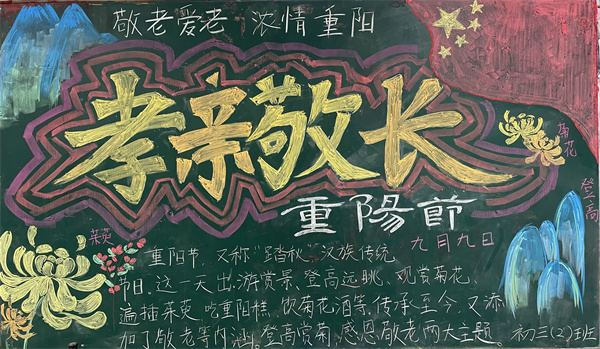 敬老爱老 浓情重阳
孝亲敬长
菊花
登高
重陽節
九月九日
茱萸
重阳节，又称“踏秋”汉族传统
节日，这一天出游赏景、登高远眺、观赏菊花、
遍插茱萸、吃重阳糕、饮菊花酒等，传承至今，又添
加了敬老等内涵。登高赏菊、感恩敬老两大主题。
初三（2）班